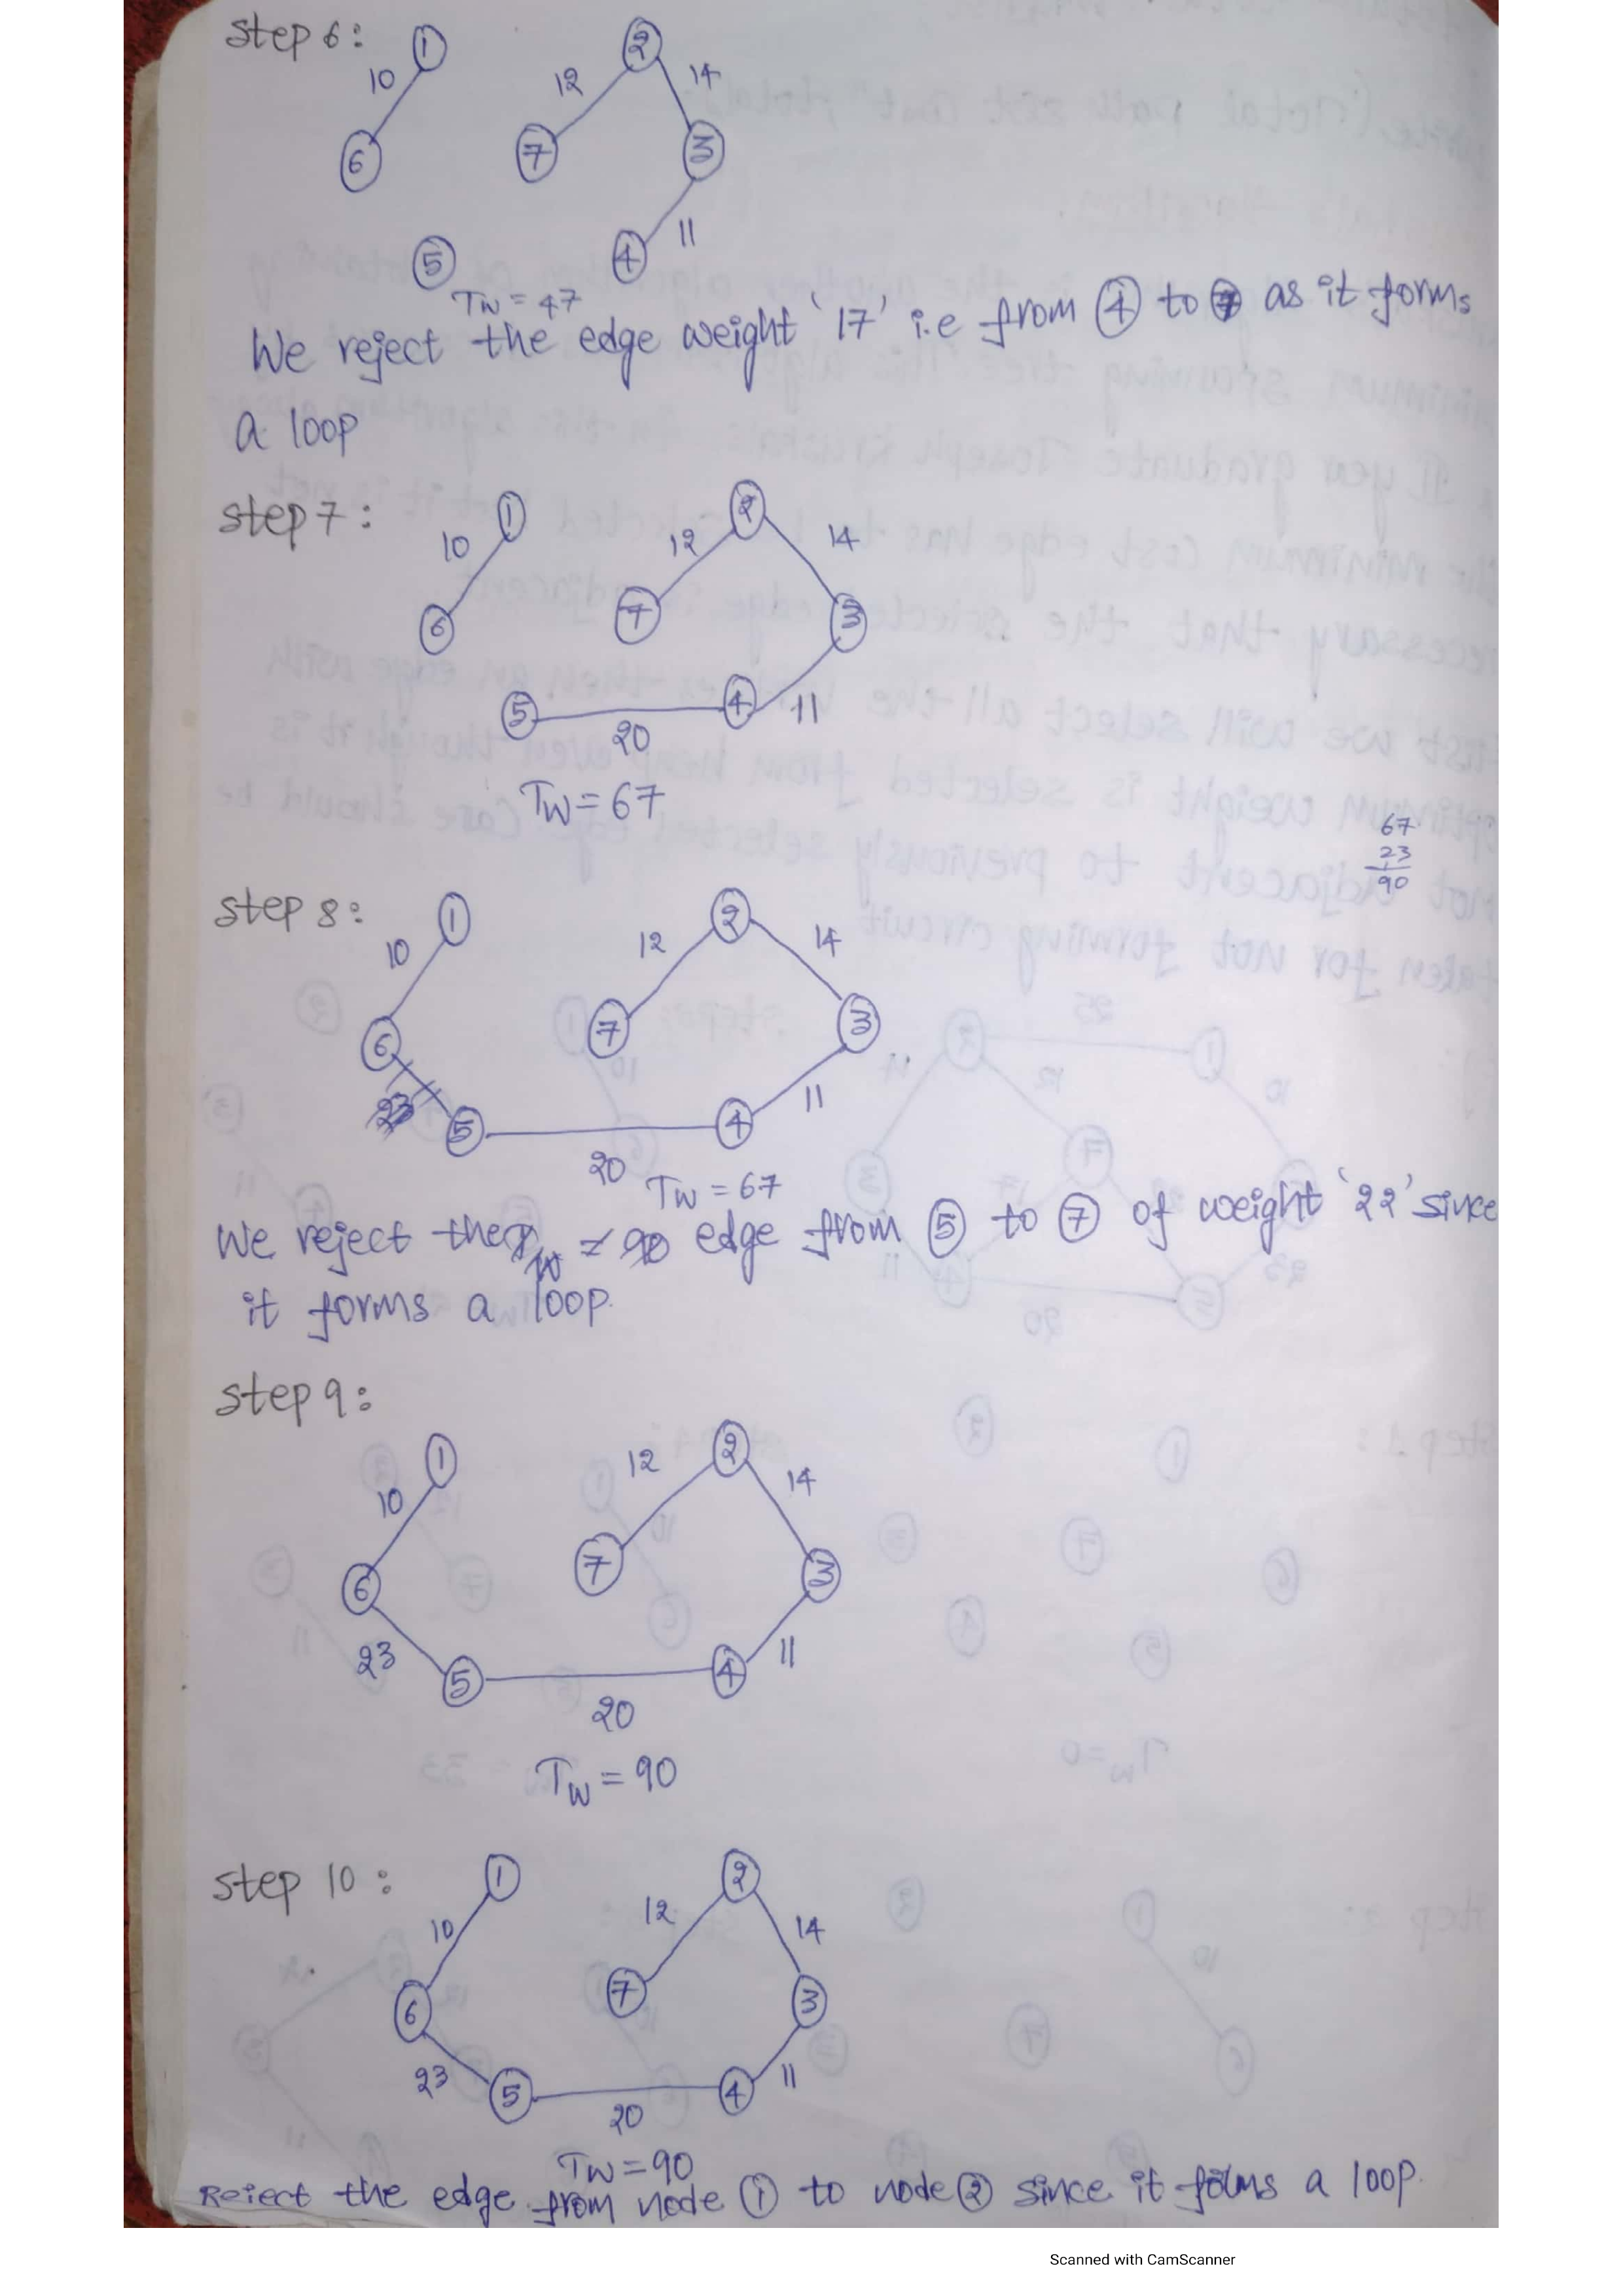 step 6:
1
2
10
12
14
6
7
3
11
5
4
Tw = 47
We reject the edge weight '17' i.e from 4 to 7 as it forms
a loop
step 7:
1
2
10
12
14
6
7
3
5
4
11
20
Tw = 67
67
23
90
step 8:
1
2
10
12
14
6
7
3
23
5
4
11
20
Tw = 67
We reject the Tw = 90 edge from 5 to 7 of weight '22' since
it forms a loop.
step 9:
1
2
10
12
14
6
7
3
23
5
4
11
20
Tw = 90
step 10:
1
2
10
12
14
6
7
3
23
5
4
11
20
Tw = 90
Reject the edge from node 1 to node 2 since it forms a loop.
Scanned with CamScanner